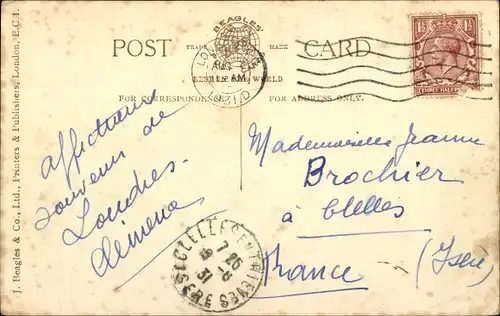 BEAGLES'
POST
TRADE
MARK
CARD
BEST IN THE WORLD
FOR CORRESPONDENCE
FOR ADDRESS ONLY.
LONDON
AM
1931
1½ 1½
THREE HALFPENCE
J. Beagles & Co., Ltd., Printers & Publishers, London, E.C.1.
affectueux
souvenir de
Londres.
Clémence
Mademoiselle Jeanne
Brochier
à Clelles
France (Isère)
CLELLES-EN-TRIEVES
7 25
31
ISERE